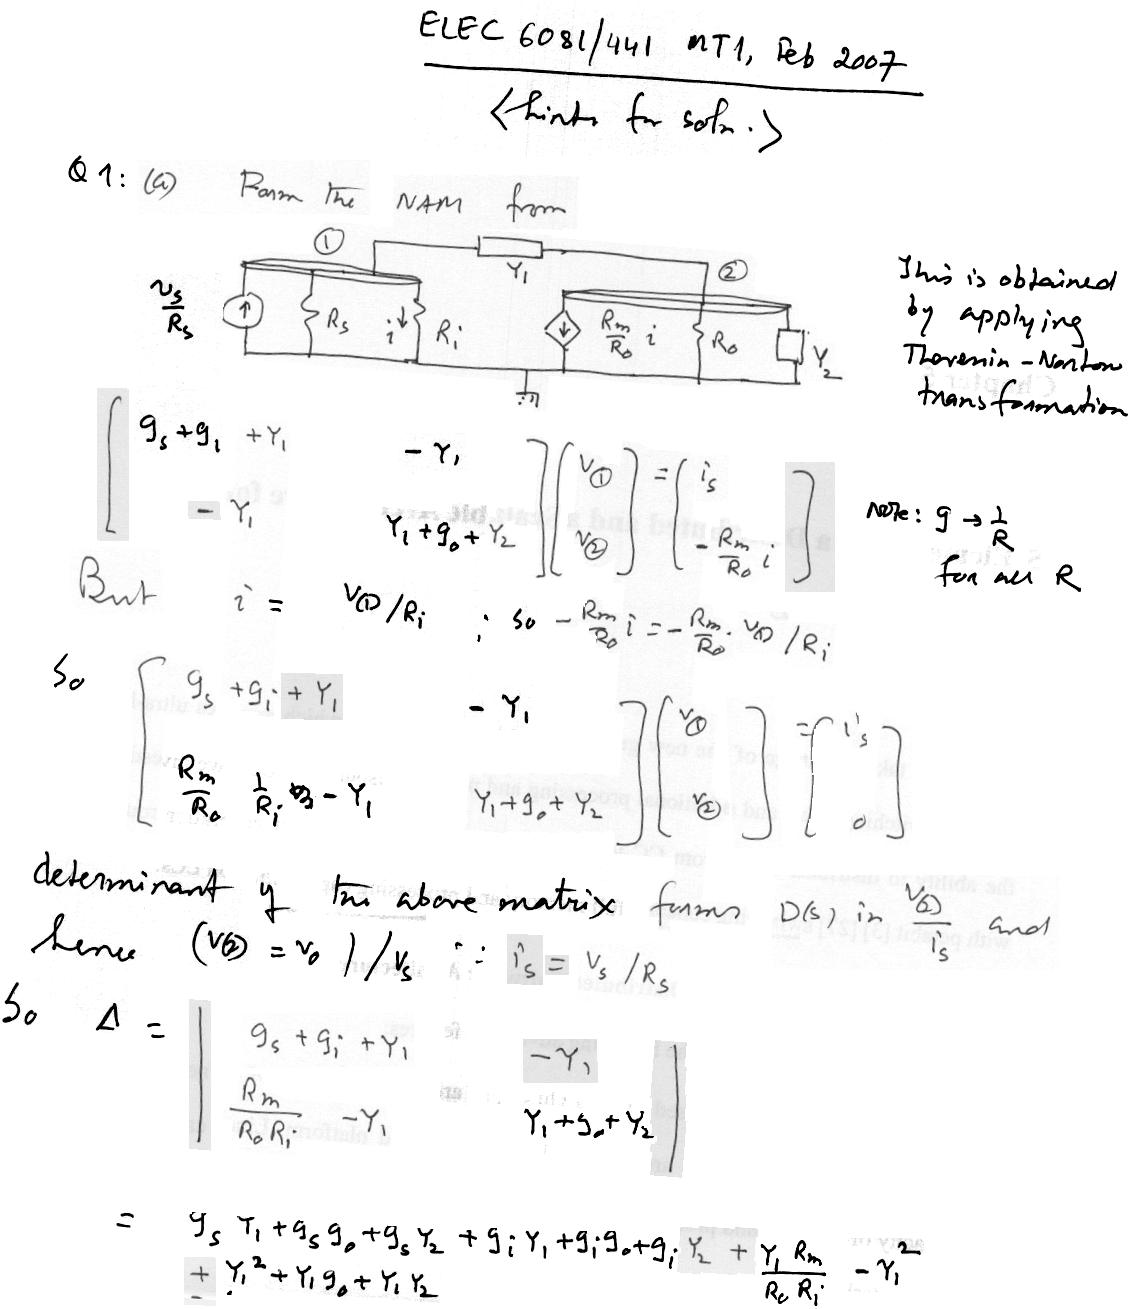 ELEC 6081/441 MT1, Feb 2007
<hints for soln.>
Q1: (a) Form the NAM from
① Y₁ ②
vs/Rs Rs i Ri Rm/Ro i Ro Y₂
This is obtained
by applying
Thevenin-Norton
transformation
[gs+gi +Y₁ -Y₁] [V① ] = [is]
[-Y₁ Y₁+go+Y₂] [V②] [-Rm/Ro i]
Note: g → 1/R
for all R
But i = V①/Ri ; so -Rm/Ro i = -Rm/Ro . V①/Ri
So [gs +gi + Y₁ -Y₁] [V①] = [is]
[Rm/Ro 1/Ri -Y₁ Y₁+go+Y₂] [V②] [0]
determinant of the above matrix forms D(s) in V②/is and
hence (V② = vo)/vs ∵ is = Vs/Rs
So Δ = | gs + gi + Y₁ -Y₁ |
| Rm/RoRi -Y₁ Y₁+go+Y₂ |
= gs Y₁ + gs go + gs Y₂ + gi Y₁ + gi go + gi Y₂ + Y₁ Rm/Ro Ri - Y₁²
+ Y₁² + Y₁ go + Y₁ Y₂